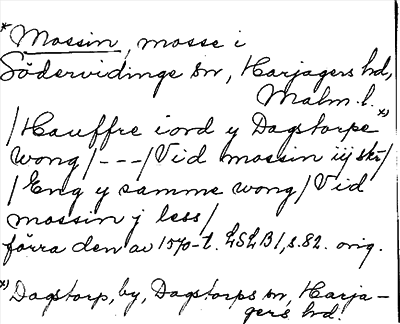 * Mossin, mosse i
Södervidinge sn, Harjagers hd,
Malm. l.
/Hauffre iord y Dagstorpe x)
wong/---/Vid mossin iij skr/
/Eng y samme wong/Vid
mossin j less/
förra den av 1570-t. LSLB1, s. 82. orig.
x) Dagstorp, by, Dagstorps sn, Harja-
gers hd.